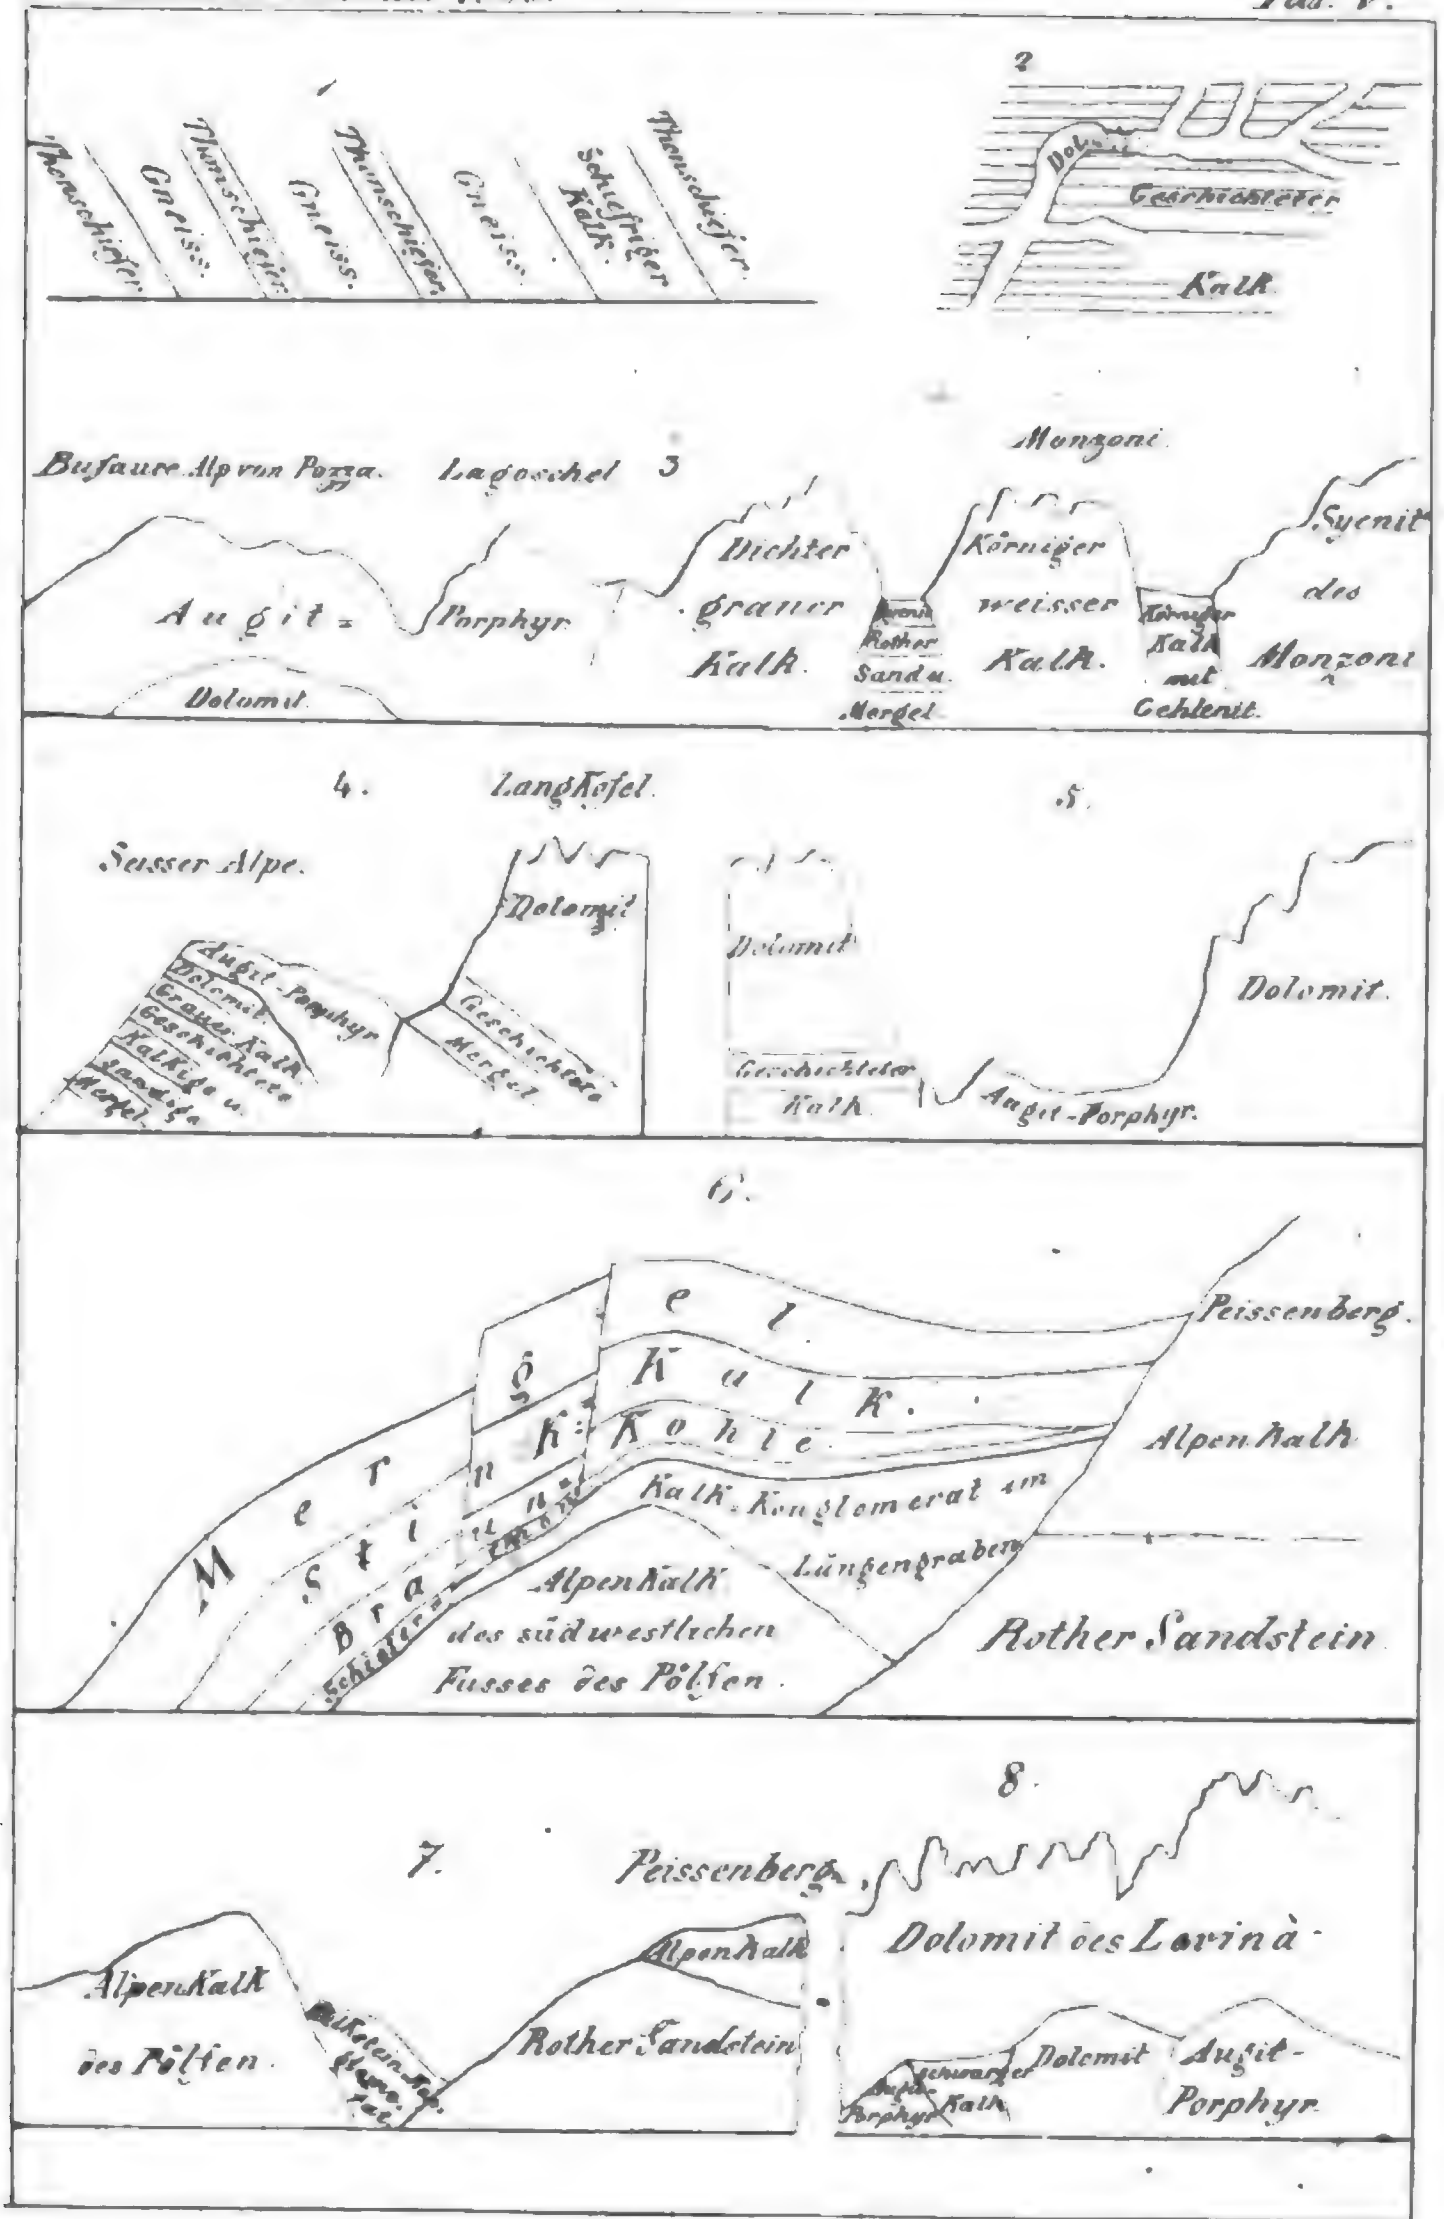 Tab. V.
Thonschiefer.
Gneiss.
Thonschiefer.
Gneiss.
Thonschiefer.
Gneiss.
Schiefriger
Kalk.
Thonschiefer.
2
Geschichteter
Kalk
Bufaure Alp von Pozza.
Lagoschel
3
Monzoni
Augit=
Porphyr
Dolomit.
Dichter
grauer
Kalk.
Rother
Sand u.
Mergel
Körniger
weisser
Kalk.
Körniger
Kalk
mit
Gehlenit.
Syenit
des
Monzoni
4.
LangKofel.
Seisser Alpe.
Augit-Porphyr
Dolomit.
Grauer Kalk.
Geschichtete
Kalkige u.
Sandige
Mergel.
Dolomit
Geschichtete
Mergel.
5.
Dolomit
Geschichteter
Kalk.
Augit-Porphyr.
Dolomit.
6.
Mergel.
StinkKalk.
BraunKohle.
Peissenberg.
AlpenKalk
Kalk-Konglomerat im
Längengraben
AlpenKalk
des südwestlichen
Fusses des Pölsen.
Rother Sandstein
7.
Peissenberg.
AlpenKalk
des Pölsen.
AlpenKalk
Rother Sandstein
8.
Dolomit des Lavinà
Augit-
Porphyr
schwarzer
Kalk
Dolomit
Augit-
Porphyr